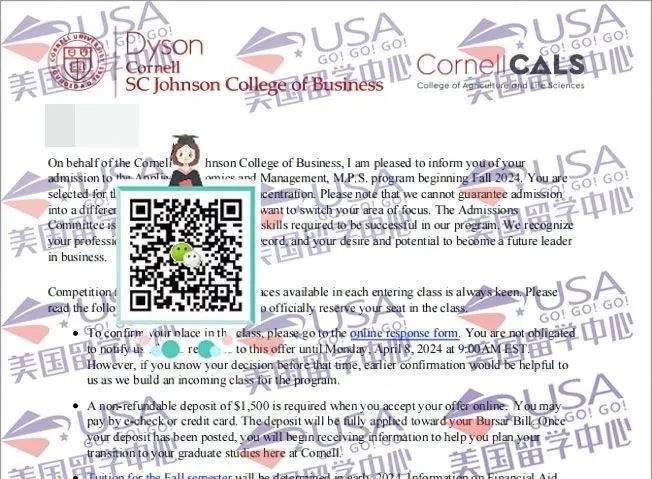 Dyson
Cornell
SC Johnson College of Business
CornellCALS
College of Agriculture and Life Sciences
USA
GO! GO! GO!
美国留学中心
On behalf of the Cornell hnson College of Business, I am pleased to inform you of your
admission to the Applie omics and Management, M.P.S. program beginning Fall 2024. You are
selected for th centration. Please note that we cannot guarantee admission
into a differen want to switch your area of focus. The Admissions
Committee is skills required to be successful in our program. We recognize
your professio cord, and your desire and potential to become a future leader
in business.
Competition f ces available in each entering class is always keen. Please
read the follo o officially reserve your seat in the class.
• To confirm your place in the class, please go to the online response form. You are not obligated
to notify us re to this offer until Monday, April 8, 2024 at 9:00AM EST.
However, if you know your decision before that time, earlier confirmation would be helpful to
us as we build an incoming class for the program.
• A non-refundable deposit of $1,500 is required when you accept your offer online. You may
pay by e-check or credit card. The deposit will be fully applied toward your Bursar Bill. Once
your deposit has been posted, you will begin receiving information to help you plan your
transition to your graduate studies here at Cornell.
• Tuition for the Fall semester will be determined in early 2024. Information on Financial Aid